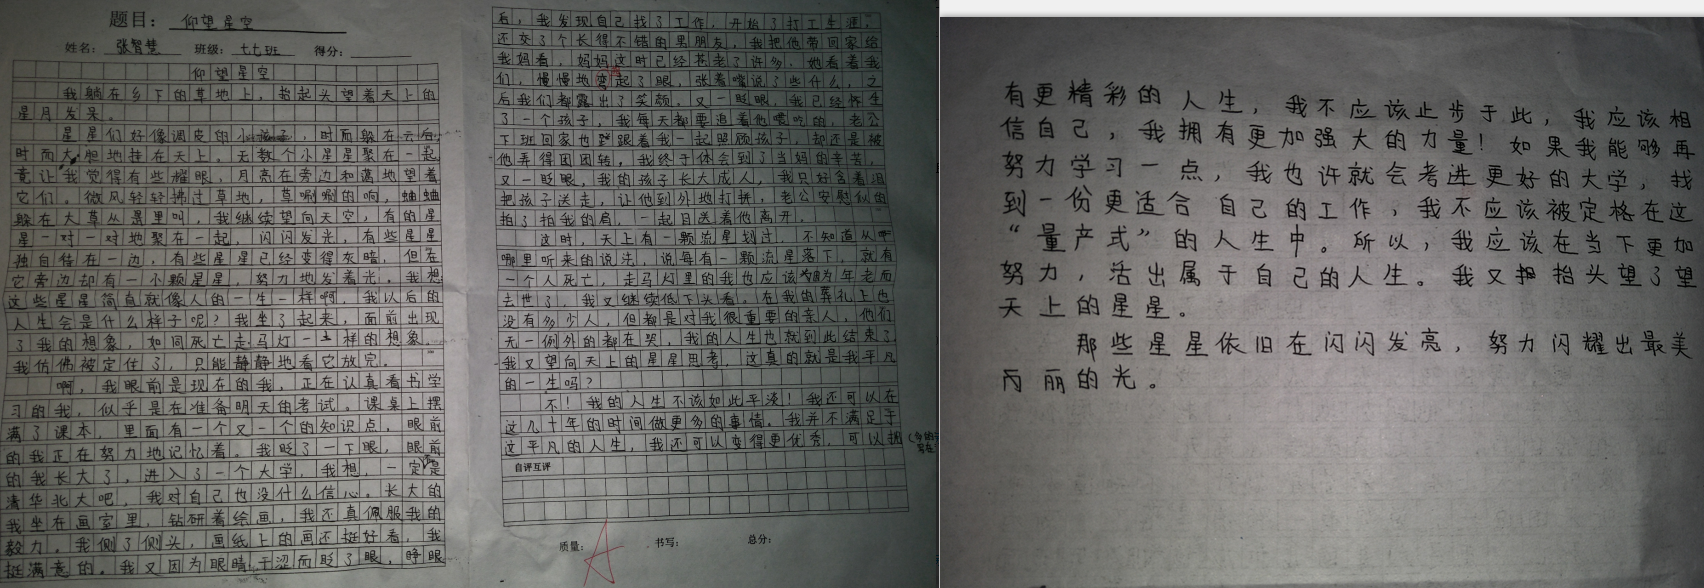 题目：仰望星空
姓名：张智慧 班级：七七班 得分：
仰望星空
我躺在乡下的草地上，抬起头望着天上的
星月发呆。
星星们好像调皮的小孩子，时而躲在云后，
时而大胆地挂在天上。无数个小星星聚在一起，
竟让我觉得有些耀眼，月亮在旁边和蔼地望着
它们。微风轻轻拂过草地，草唰唰的响，蛐蛐
躲在大草丛里叫，我继续望向天空，有的星
星一对一对地聚在一起，闪闪发光，有些星星
独自待在一边，有些星星已经变得灰暗，但在
它旁边却有一小颗星星，努力地发着光。我想，
这些星星简直就像人的一生一样啊，我以后的
人生会是什么样子呢？我坐了起来，面前出现
了我的想象，如同死亡走马灯一样的想象。
我仿佛被定住了，只能静静地看它放完。
啊，我眼前是现在的我，正在认真看书学
习的我，似乎是在准备明天的考试。课桌上摆
满了课本，里面有一个又一个的知识点，眼前
的我正在努力地记忆着。我眨了一下眼，眼前
的我长大了，进入了一个大学，我想，一定是
清华北大吧，我对自己也没什么信心。长大的
我坐在画室里，钻研着绘画，我还真佩服我的
毅力。我侧了侧头，画纸上的画还挺好看，我
挺满意的。我又因为眼睛干涩而眨了眼，睁眼
后，我发现自己找了工作，开始了打工生涯，
还交了个长得不错的男朋友，我把他带回家给
我妈看，妈妈这时已经苍老了许多，她看着我
们，慢慢地弯起了眼，张着嘴说了些什么，之
后我们都露出了笑颜。又一眨眼，我已经怀生
了一个孩子，我每天都要追着他喂吃的，老公
下班回家也跟着我一起照顾孩子，却还是被
他弄得团团转，我终于体会到了当妈的辛苦，
又一眨眼，我的孩子长大成人，我只好含着泪
把孩子送走，让他到外地打拼，老公安慰似的
拍了拍我的肩，一起目送着他离开。
这时，天上有一颗流星划过，不知道从
哪里听来的说法，说每有一颗流星落下，就有
一个人死亡，走马灯里的我也应该因为年老而
去世了，我又继续低下头看。在我的葬礼上也
没有多少人，但都是对我很重要的亲人，他们
无一例外的都在哭，我的人生也就到此结束了，
我又望向天上的星星思考，这真的就是我平凡
的一生吗？
不！我的人生不该如此平淡！我还可以在
这几十年的时间做更多的事情。我并不满足于
这平凡的人生，我还可以变得更优秀，可以拥
自评互评
质量：A 书写： 总分：
有更精彩的人生，我不应该止步于此，我应该相
信自己，我拥有更加强大的力量！如果我能够再
努力学习一点，我也许就会考进更好的大学，找
到一份更适合自己的工作，我不应该被定格在这
“量产式”的人生中。所以，我应该在当下更加
努力，活出属于自己的人生。我又抬头望了望
天上的星星。
那些星星依旧在闪闪发亮，努力闪耀出最美
丽的光。